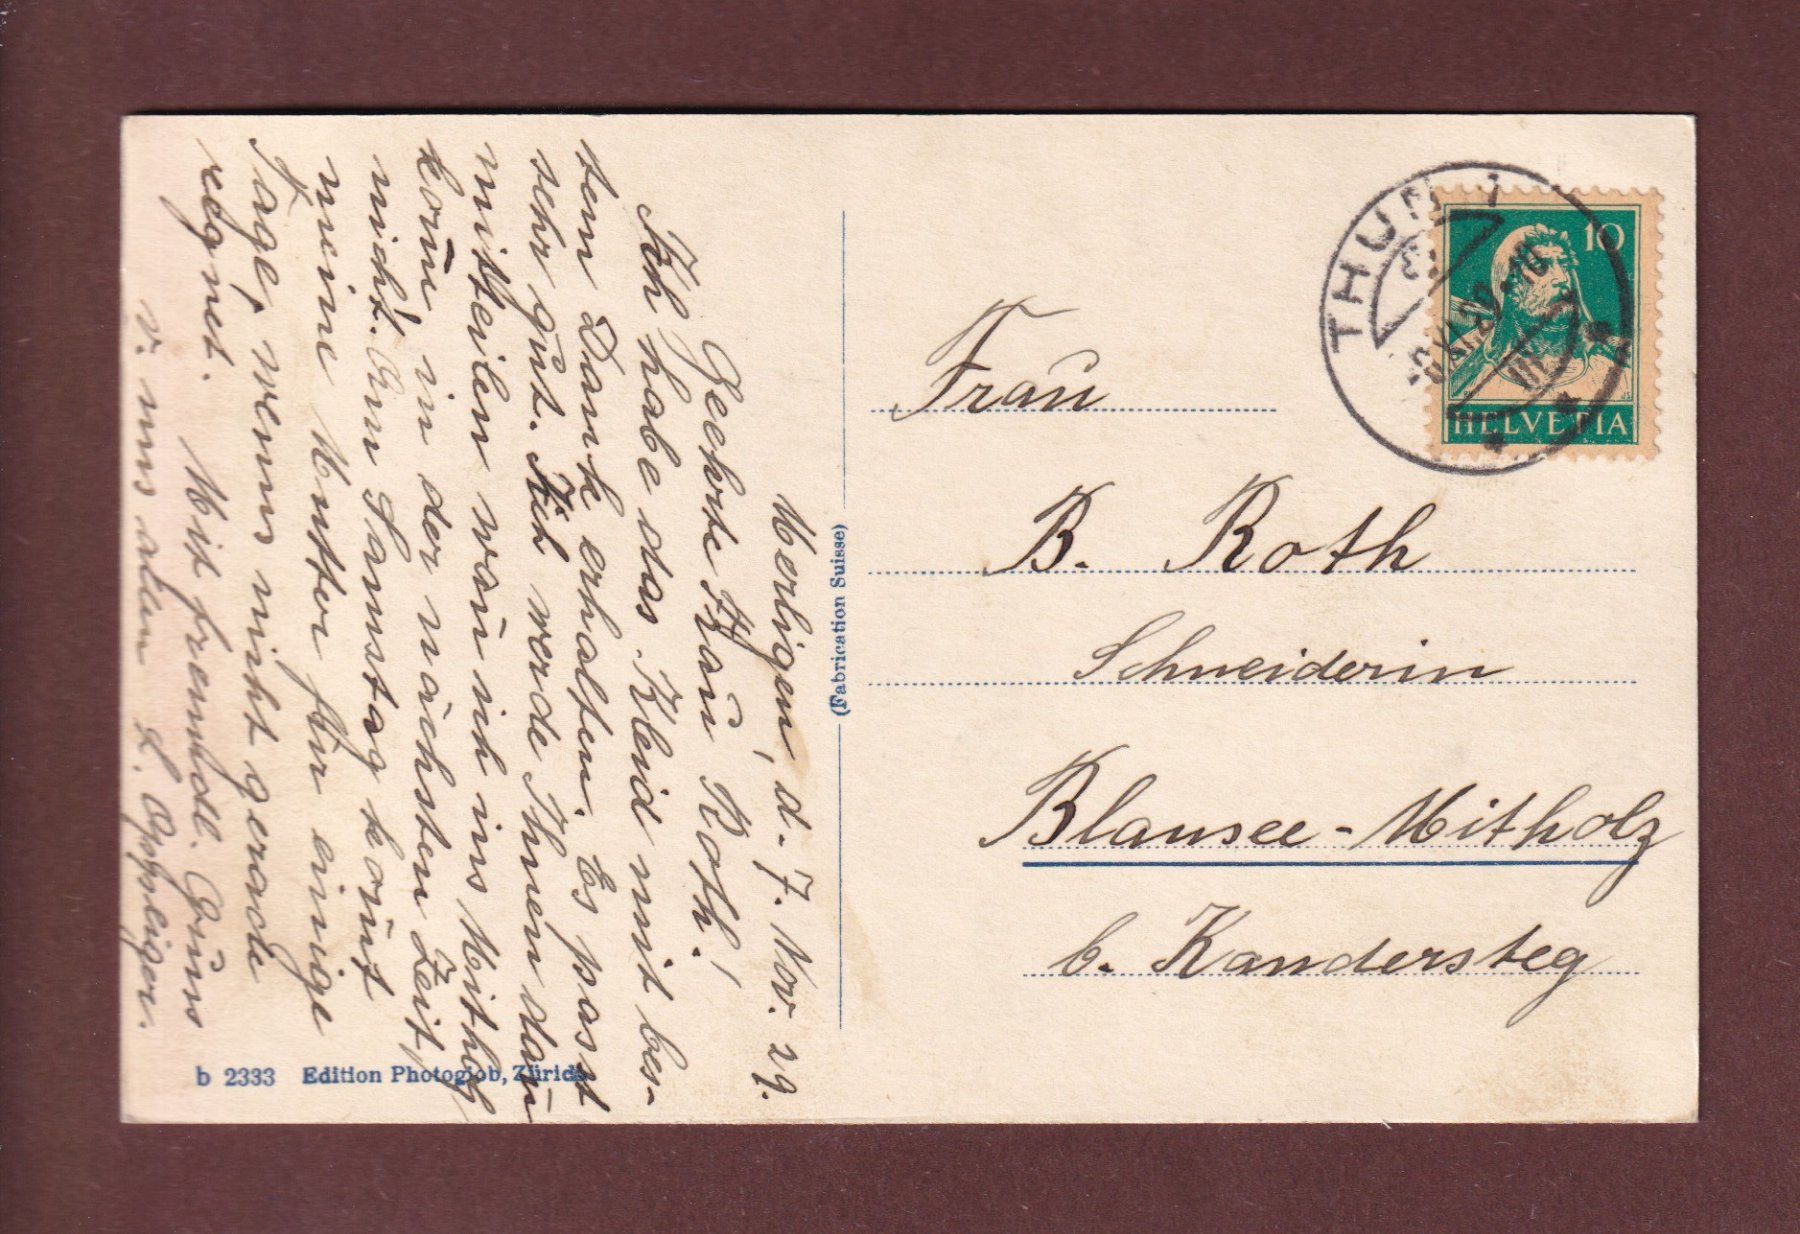 Merligen, d. 7. Nov. 29.
Geehrte Frau Roth!
Ich habe das Kleid mit bes-
ten Dank erhalten. Es passt
sehr gut. Ich werde Ihnen dañ
mitteilen wañ ich ins Mitholz
kom̃, in der nächsten Zeit,
nicht. Am Samstag kom̃t
meine Mutter für einige
Tage, wenns nicht gerade
regnet. Mit freundl. Grüss
v. uns allen L. Oppliger.
b 2333 Edition Photoglob, Zürich
(Fabrication Suisse)
THUN 1
XI.29.-10
HELVETIA
10
Frau
B. Roth
Schneiderin
Blausee-Mitholz
b. Kandersteg